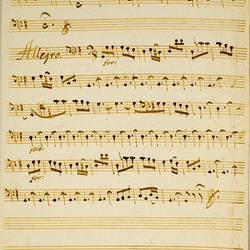 Allegro.
for:
pia:
for: